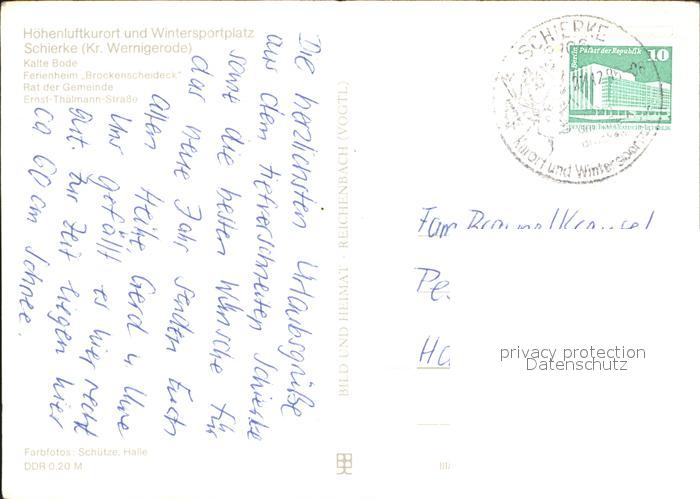 Höhenluftkurort und Wintersportplatz
Schierke (Kr. Wernigerode)
Kalte Bode
Ferienheim „Brockenscheideck"
Rat der Gemeinde
Ernst-Thälmann-Straße
Die herzlichsten Urlaubsgrüße
aus dem tiefverschneiten Schierke
sowie die besten Wünsche für
das neue Jahr senden Euch
allen Heike, Gerd u. Uwe
Uns gefällt es hier recht
gut zur Zeit liegen hier
ca 60 cm Schnee.
BILD UND HEIMAT · REICHENBACH (VOGTL)
SCHIERKE
3706
Kurort und Wintersport
Berlin Palast der Republik
10
Fam
Pe
Ha
privacy protection
Datenschutz
Farbfotos: Schütze, Halle
DDR 0,20 M